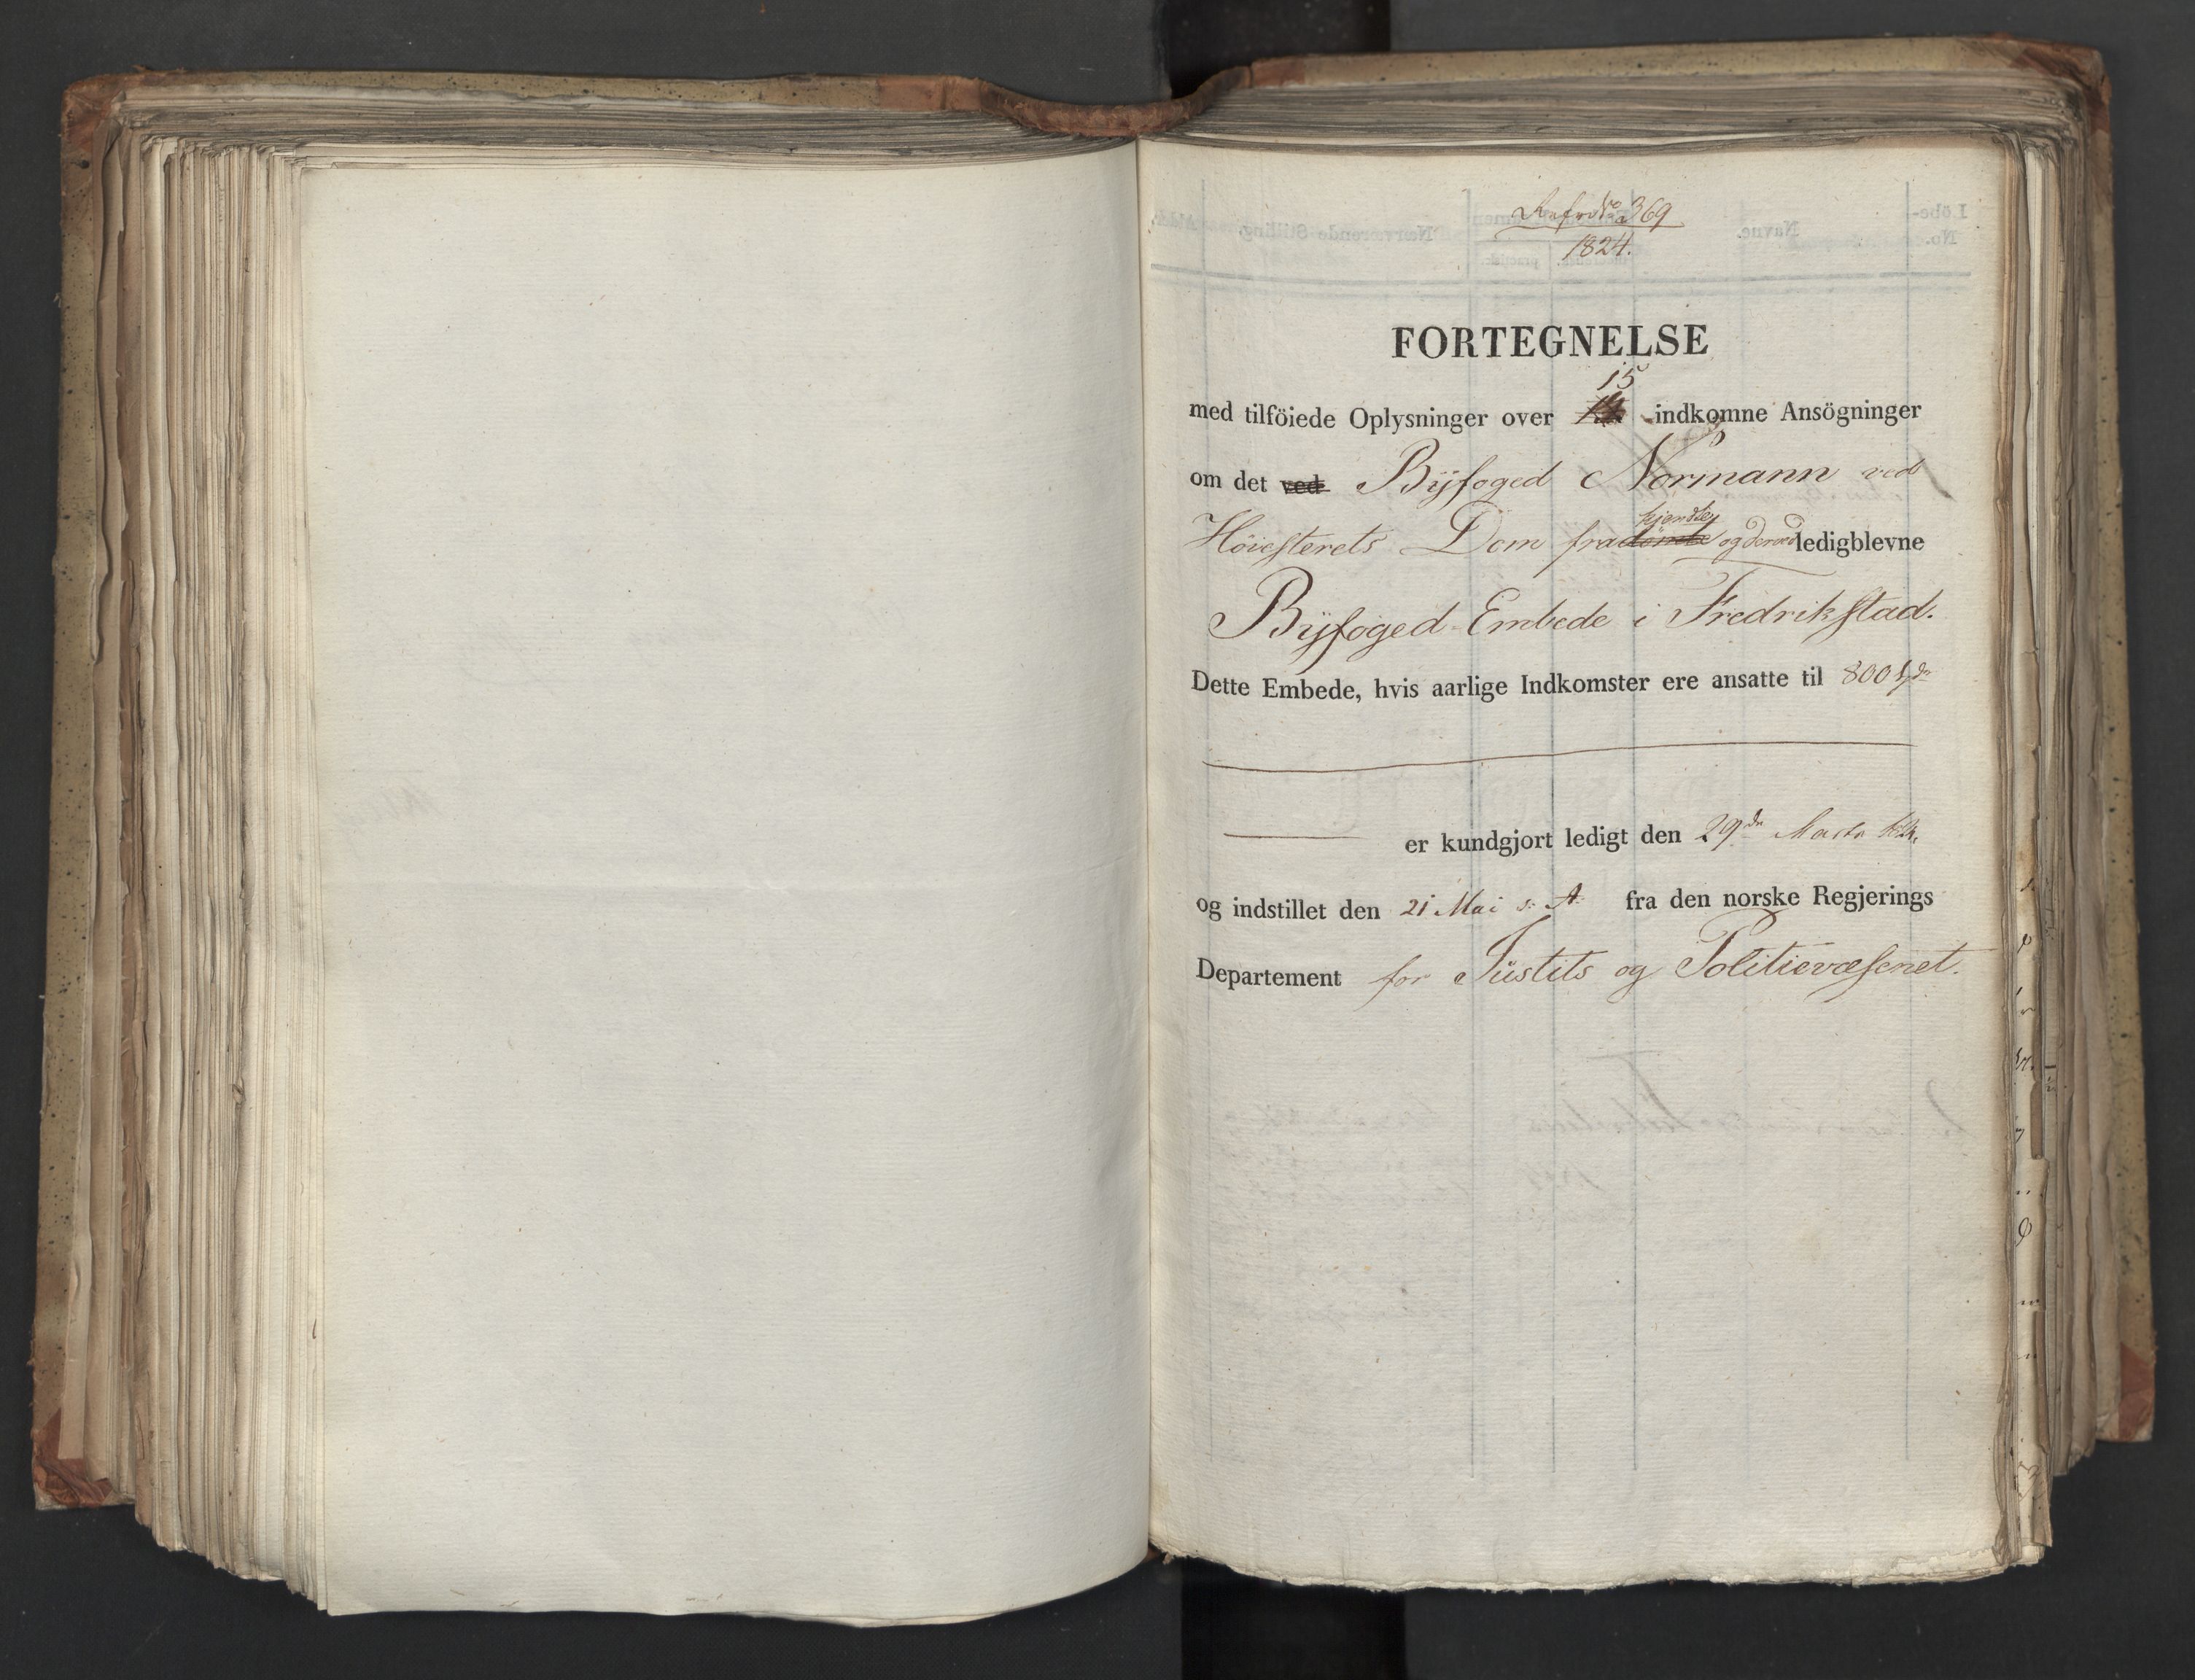 Ref. No 369
1824.
FORTEGNELSE
15
med tilföiede Oplysninger over indkomne Ansögninger
om det ved Byfoged Normann ved
kjendte
Höiesterets Dom fradömte og derved ledigblevne
Byfoged-Embede i Fredrikstad.
Dette Embede, hvis aarlige Indkomster ere ansatte til 800 Spd
er kundgjort ledigt den 29de Marts 1824.
og indstillet den 21 Mai s: A: fra den norske Regjerings
Departement for Justits og Politievæsenet.